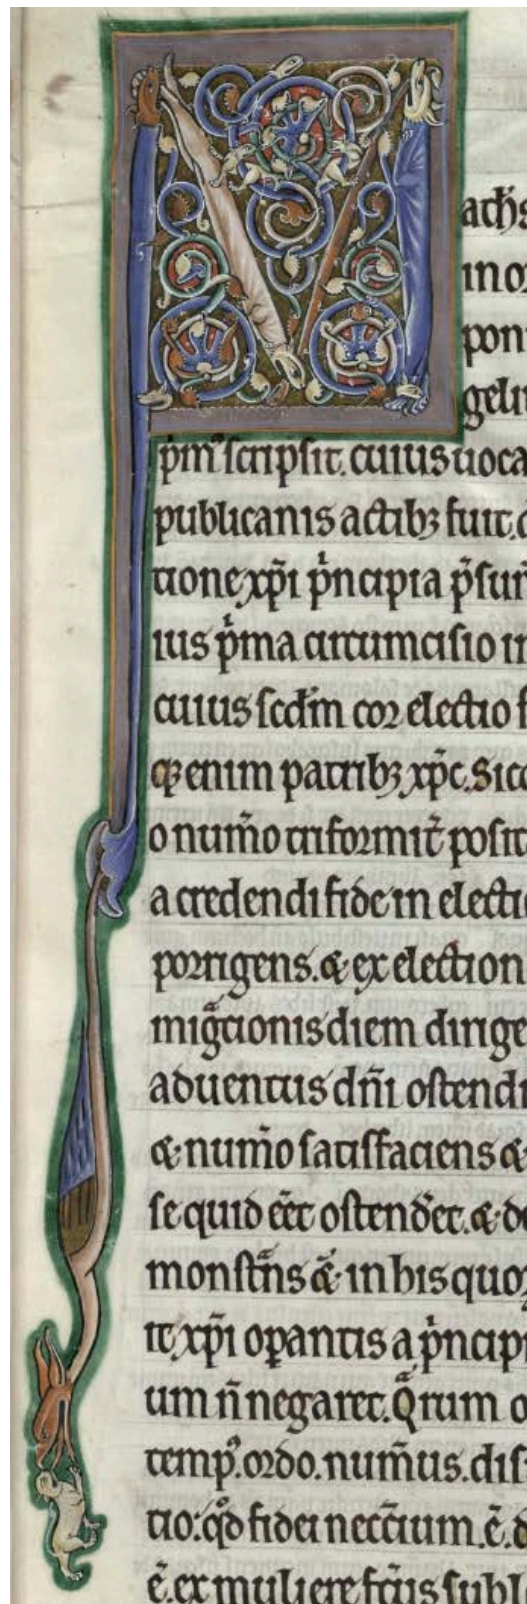 M athe
in or
pon
geli
pm᷒ scripsit. cuius uoca
publicanis actibꝫ fuit. 
tione xp̄i p̍ncipia p̄sun
ius p̍ma circumcisio in
cuius scdm̄ cor electio f
q̨ enim patribꝫ xp̄c. Sic
o num̄o triformit̄ posit
a credendi fide in electi
porrigens. & ex election
migͣtionis diem dirige
aduentus dn̄i ostendi
& num̄o satisfaciens &
se quid eēt ostend̄et. & d
monstͣns & in his quo
te xp̄i operantis a p̍ncipi
um n̄ negaret. Qͣrum o
temp᷒. ordo. num̄us. dis
tio: qͦd fidei necc̄ium. ē. d
ē. ex muliere fcͣus subl